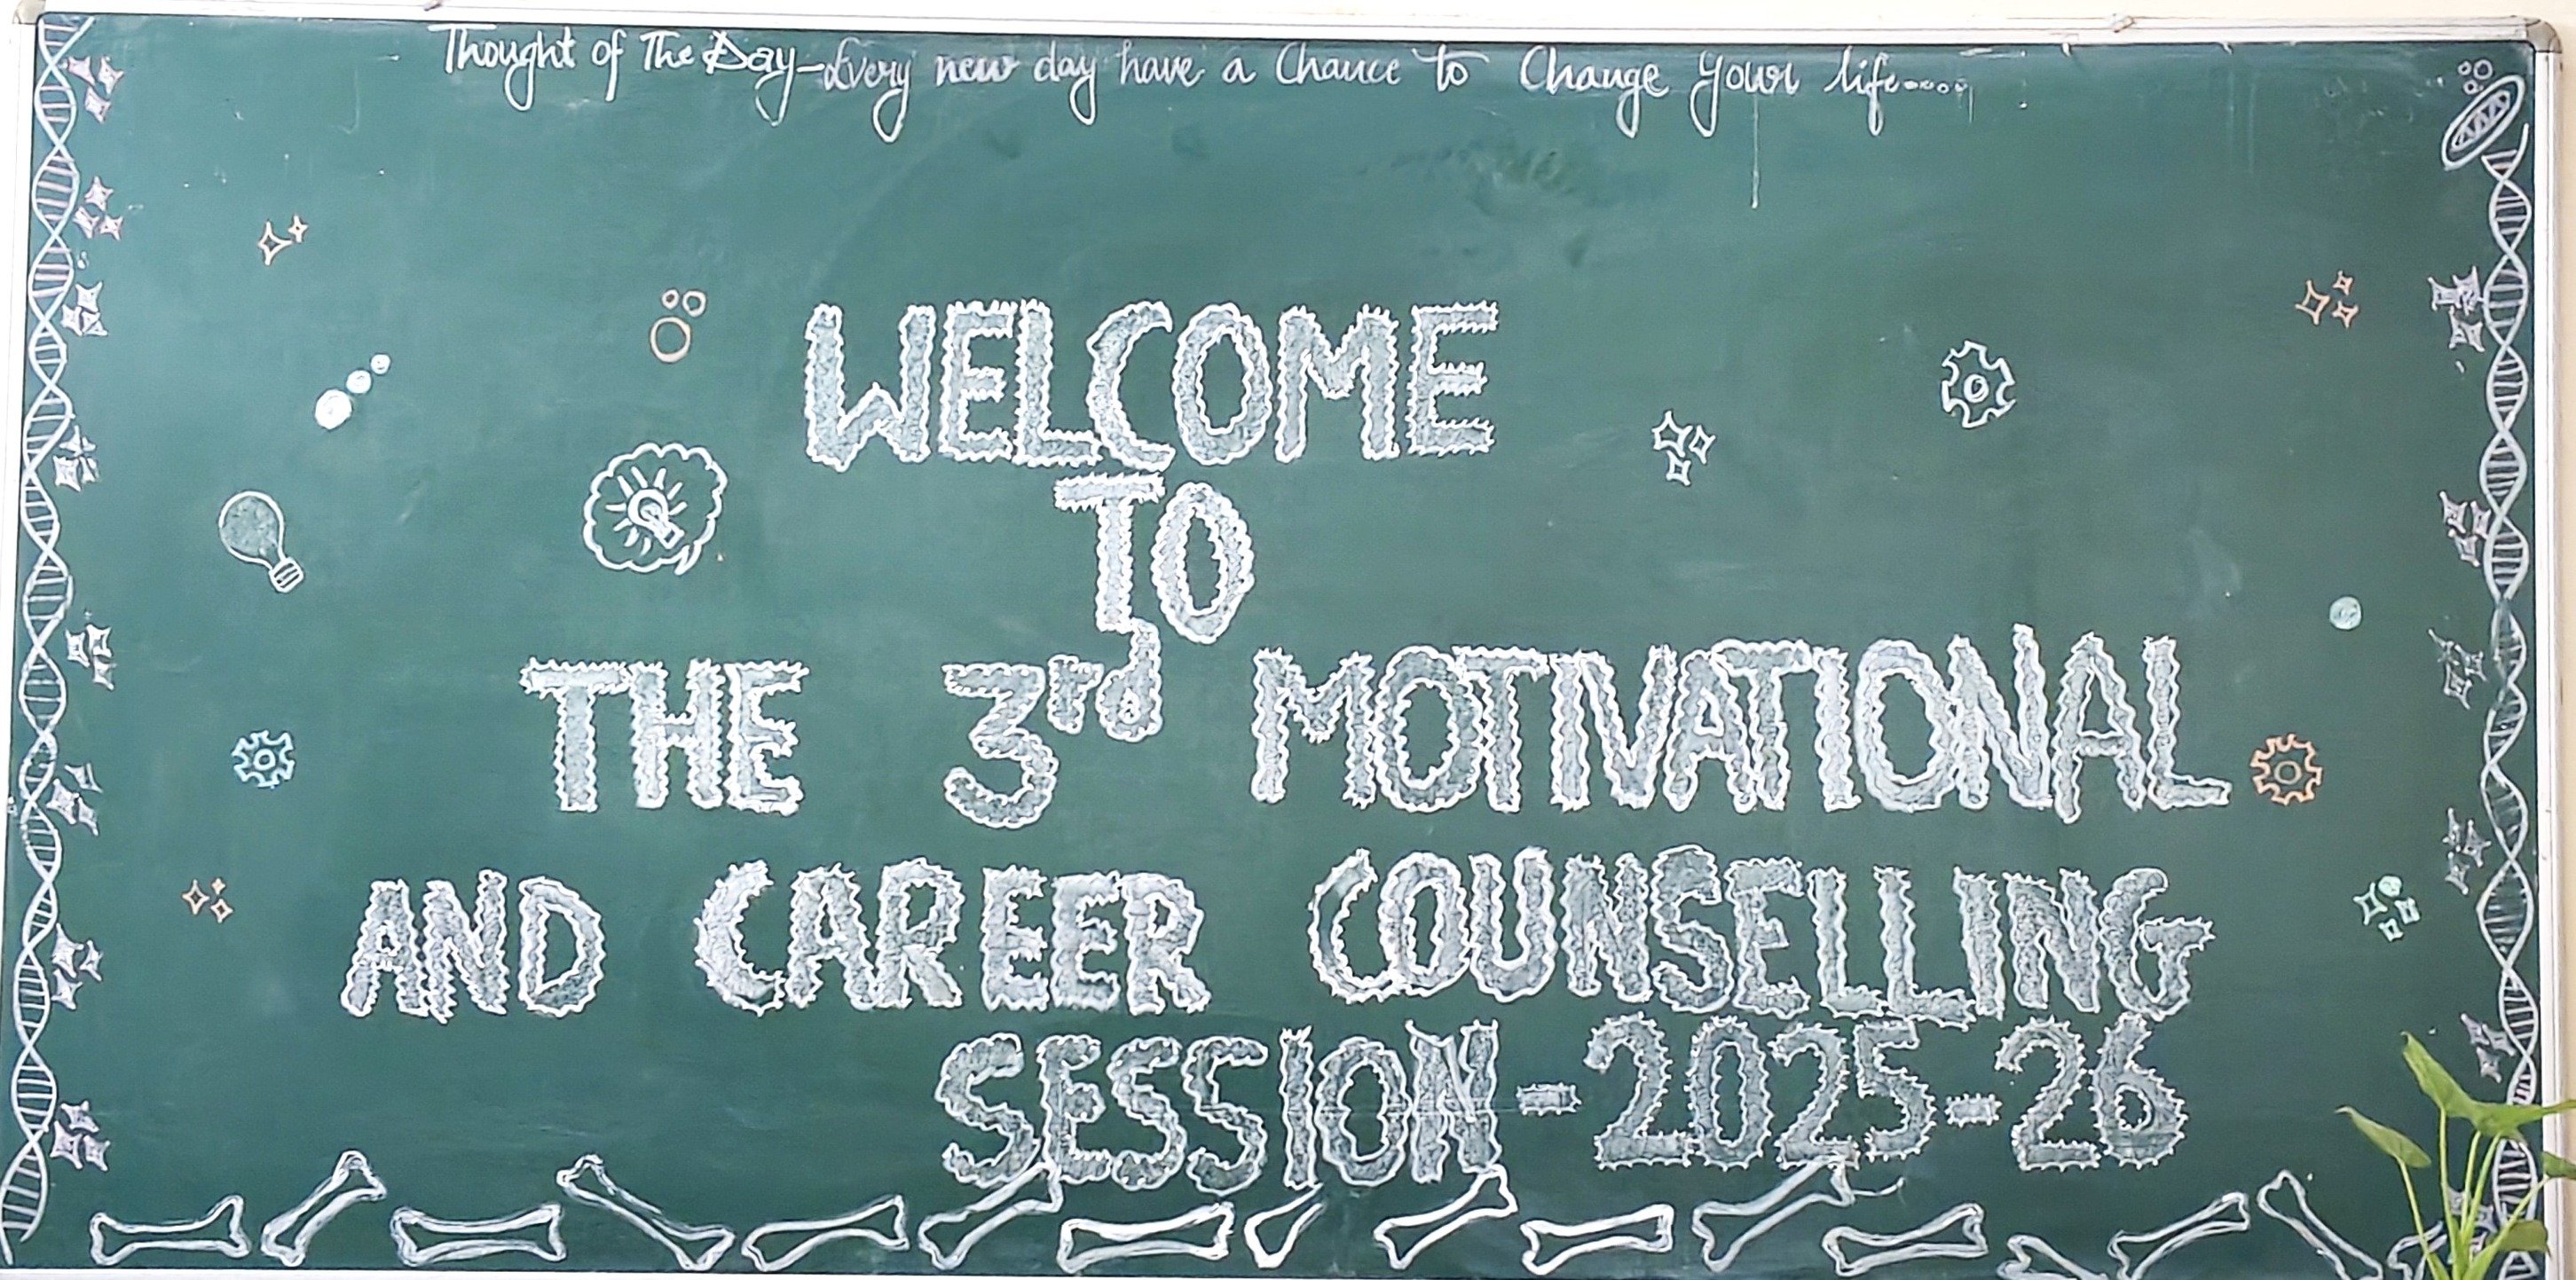 Thought of The Day-Every new day have a Chance to Change your life.....
WELCOME
TO
THE 3rd MOTIVATIONAL
AND CAREER COUNSELLING
SESSION-2025-26